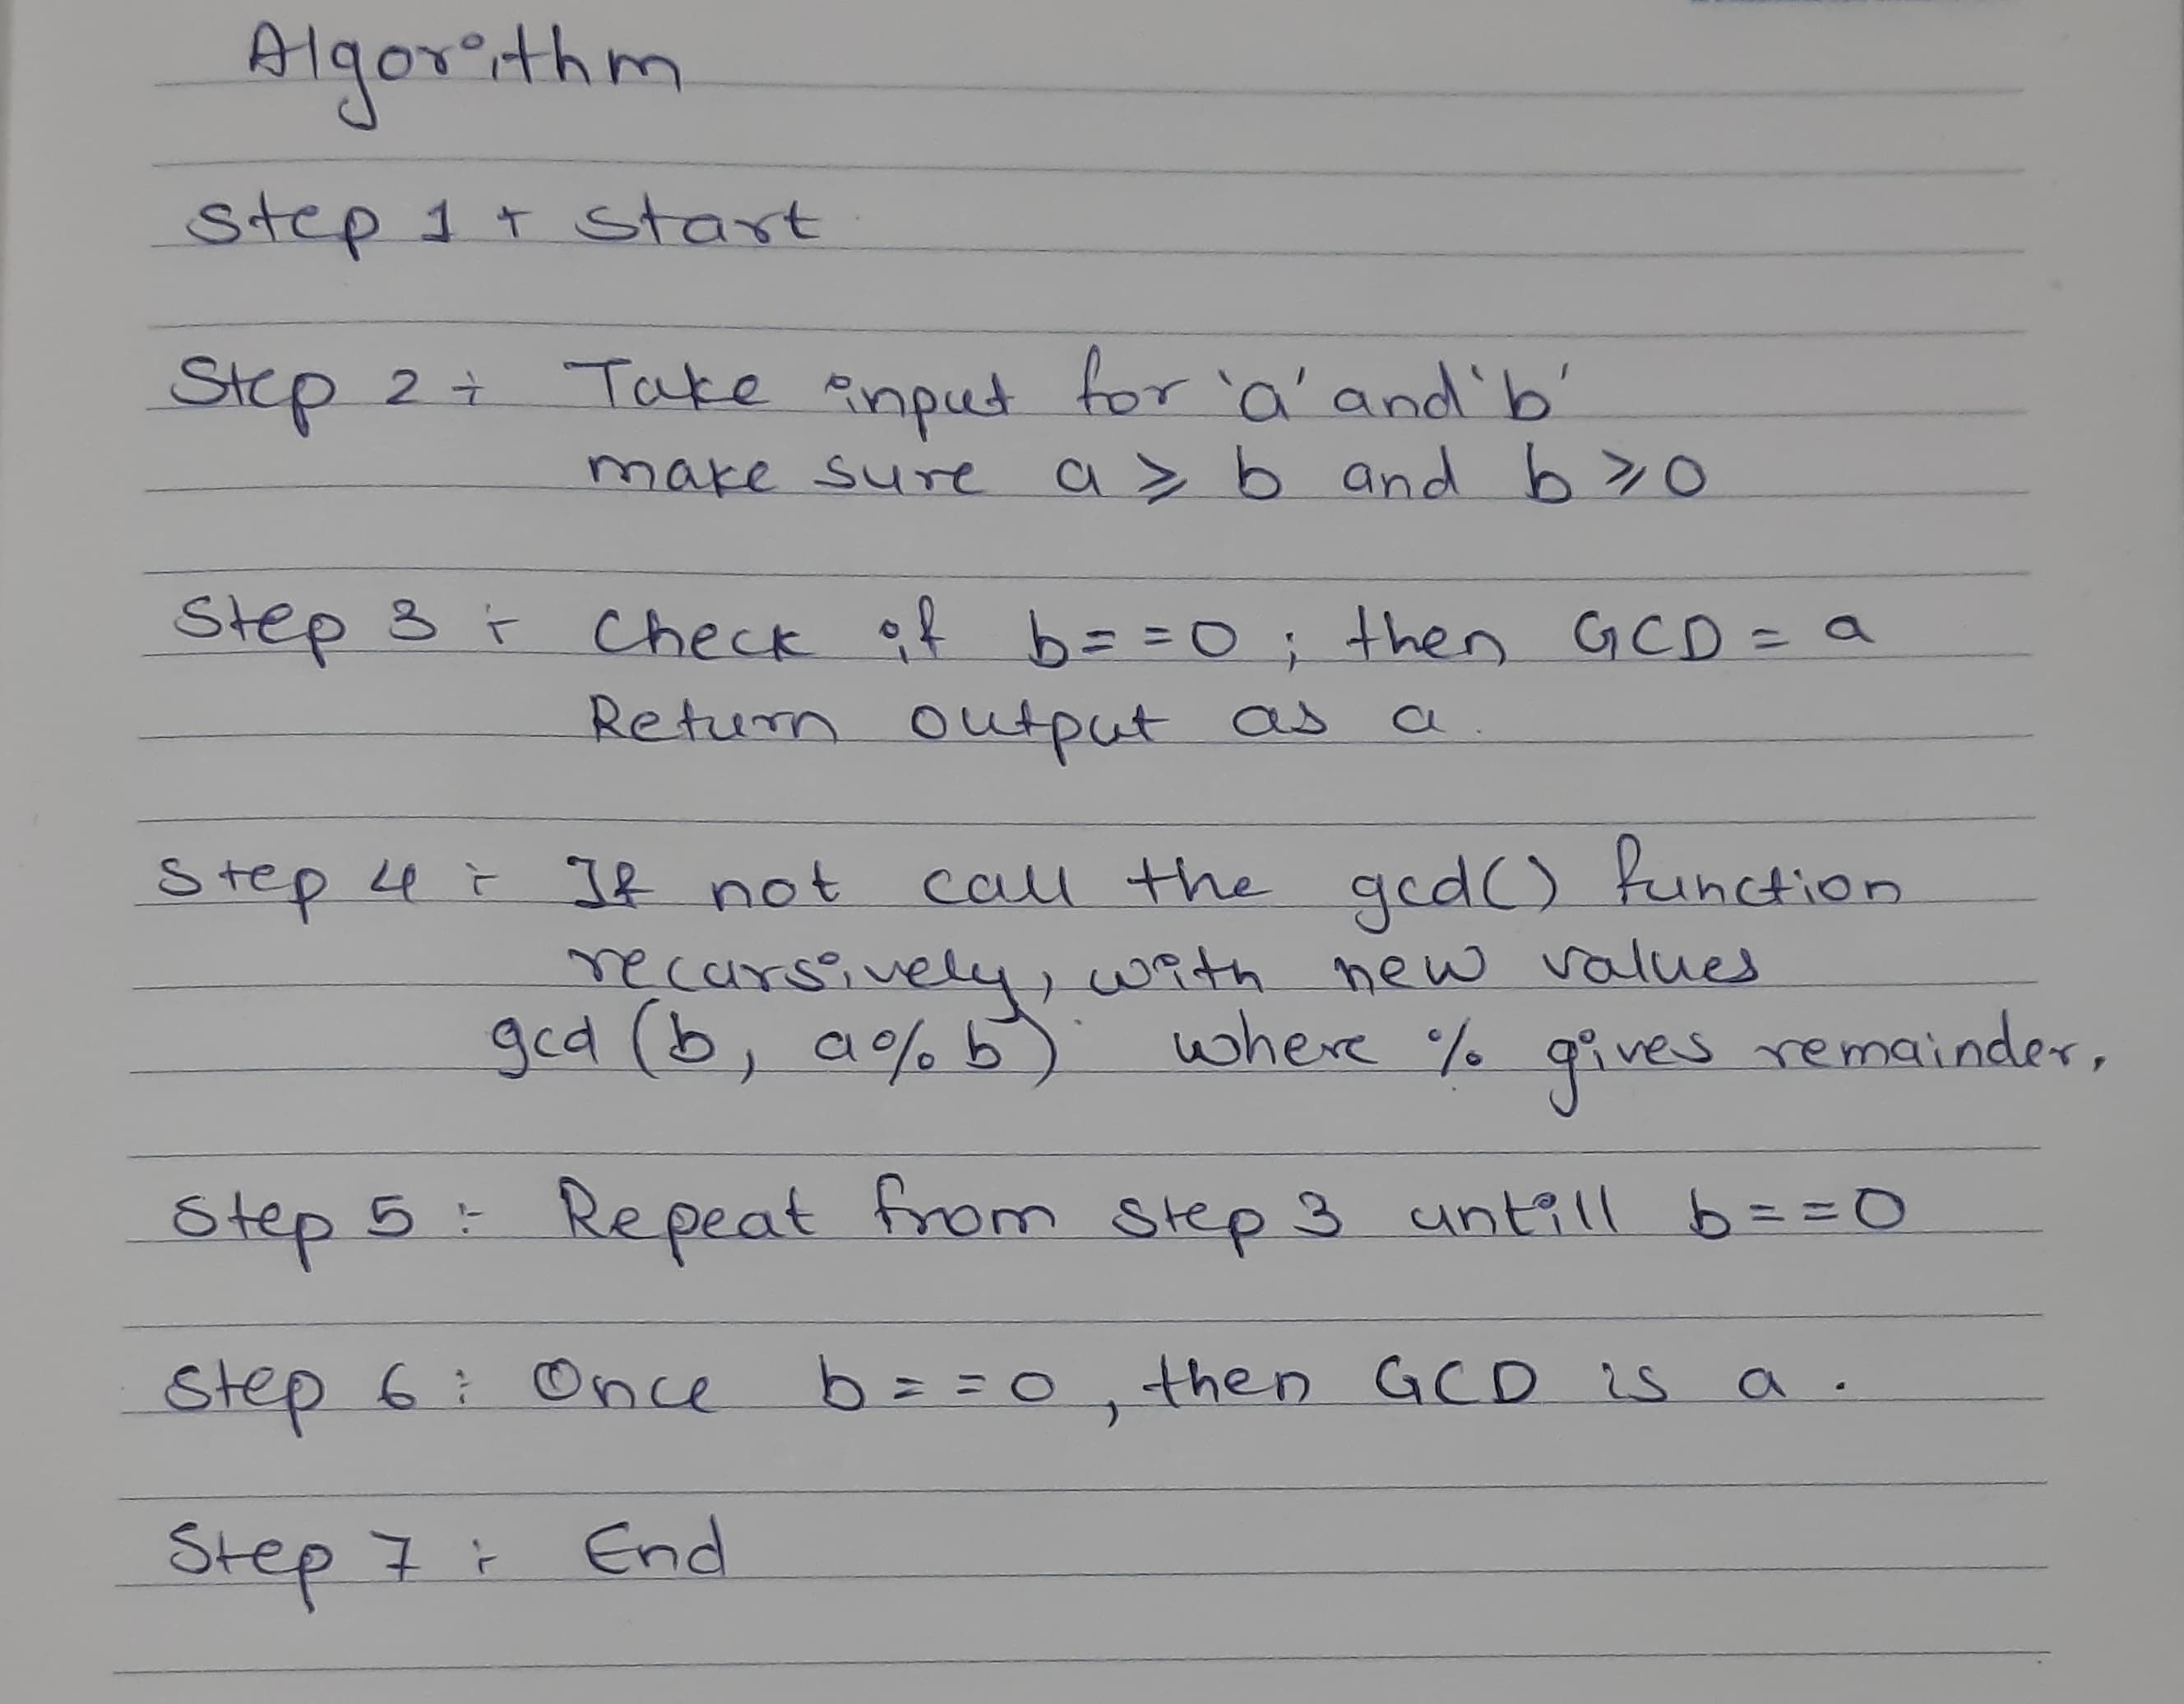 Algorithm
Step 1 ÷ Start
Step 2 ÷ Take input for 'a' and 'b'
make sure a ⩾ b and b ⩾ 0
Step 3 ÷ Check if b==0 ; then GCD = a
Return output as a.
Step 4 ÷ If not call the gcd() function
recursively, with new values
gcd (b, a%b) where % gives remainder.
Step 5 :- Repeat from step 3 untill b==0
Step 6 : Once b==0, then GCD is a.
Step 7 ÷ End